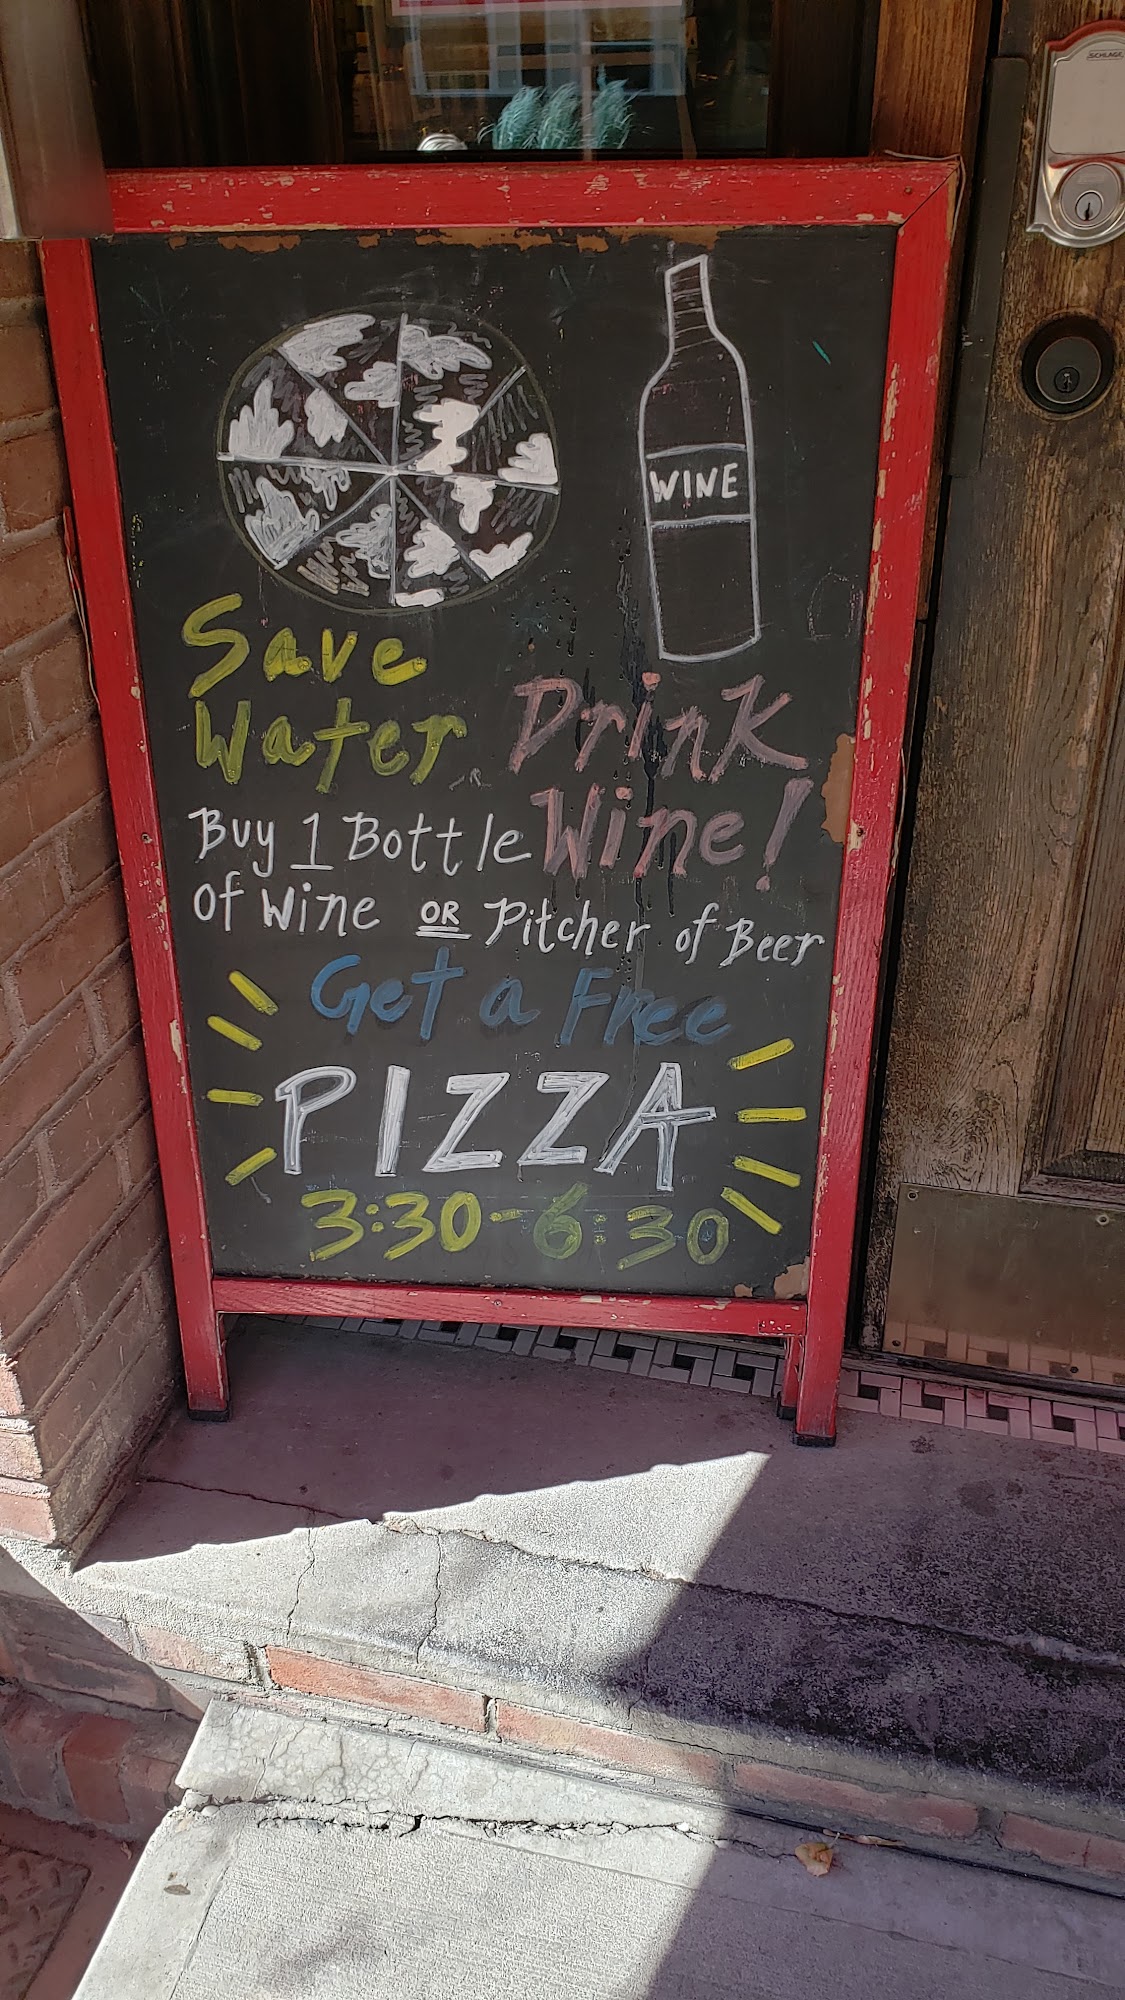 SCHLAGE
WINE
Save
Water
Drink
Wine!
Buy 1 Bottle
of Wine OR Pitcher of Beer
Get a Free
PIZZA
3:30-6:30